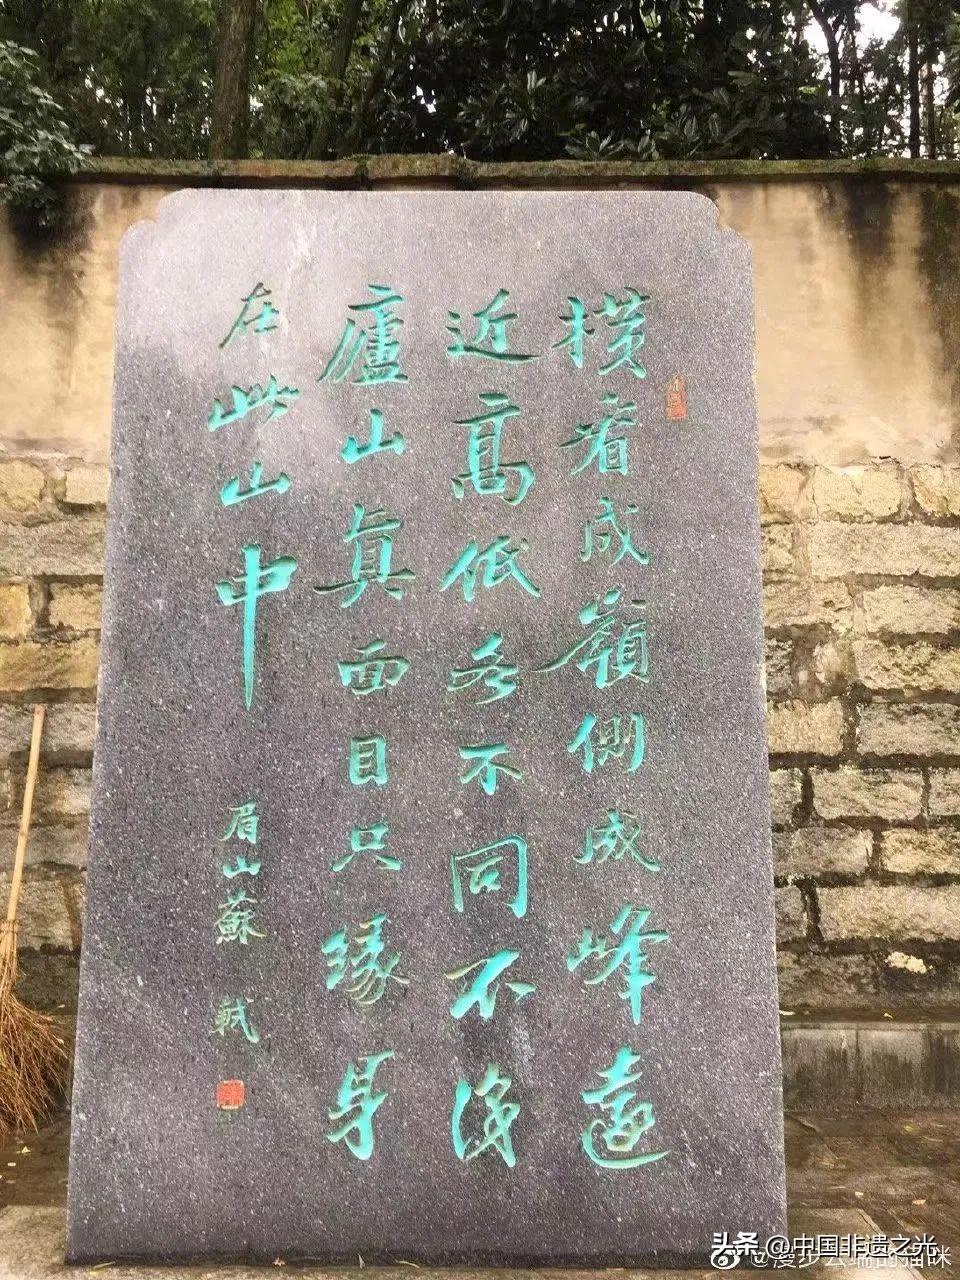 横看成嶺側成峰遠
近高低各不同不
廬山眞面目只緣身
在此山中
眉山蘇軾
头条 @中国非遗之光
@漫步云端的猫咪